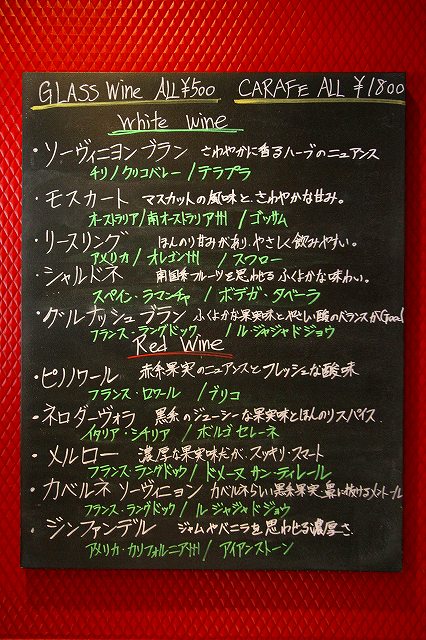 GLASS Wine ALL ¥500 CARAFE ALL ¥1800
White wine
・ソーヴィニヨンブラン さわやかに香るハーブのニュアンス
チリ/クリコバレー/テラプラ
・モスカート マスカットの風味と、さわやかな甘み。
オーストラリア/南オーストラリア州/ゴッサム
・リースリング ほんのり甘みが有り、やさしく飲みやすい。
アメリカ/オレゴン州/スワロー
・シャルドネ 南国系フルーツを思わせる ふくよかな味わい。
スペイン・ラマンチャ/ボデガ・タベーラ
・グルナッシュブラン ふくよかな果実味とやさしい酸のバランスがGood
フランス・ラングドック/ル・ジャジャドジョウ
Red Wine
・ピノノワール 赤系果実のニュアンスとフレッシュな酸味
フランス・ロワール/ブリコ
・ネロダーヴォラ 黒系のジューシーな果実味とほんのりスパイス
イタリア・シチリア/ボルゴセレーネ
・メルロー 濃厚な果実味だが、スッキリ・スマート
フランス・ラングドック/ドメーヌ サン・ティレール
・カベルネ ソーヴィニョン カベルネらしい黒系果実、鼻に抜けるメントール
フランス・ラングドック/ル ジャジャドジョウ
・ジンファンデル ジャムやバニラを思わせる濃厚さ
アメリカ・カリフォルニア州/アイアンストーン